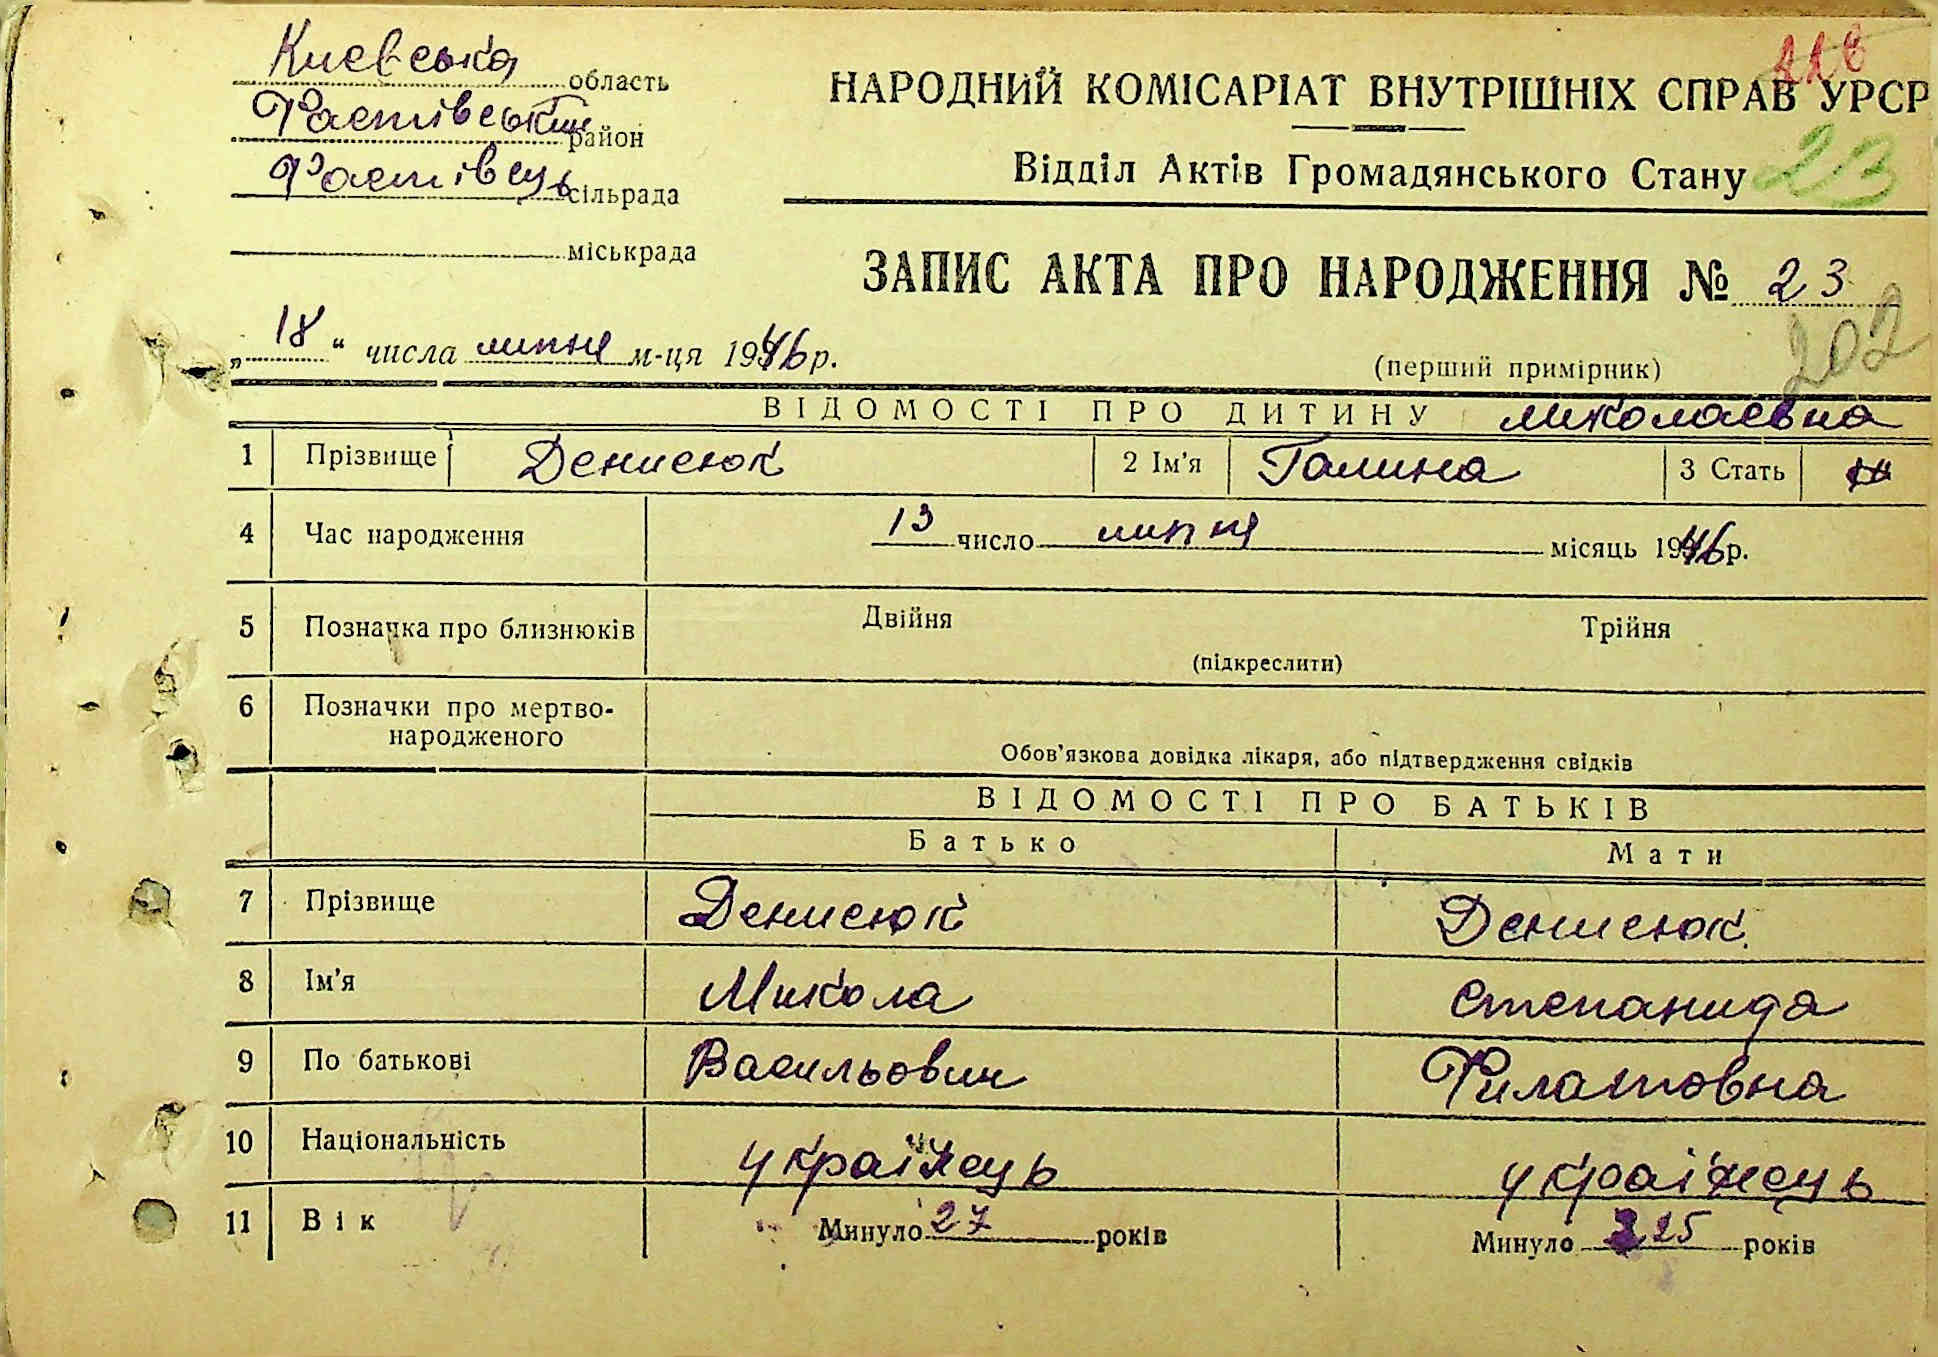 Киевська область
Фастівський район
Фастівець сільрада
міськрада
НАРОДНИЙ КОМІСАРІАТ ВНУТРІШНІХ СПРАВ УРСР
Відділ Актів Громадянського Стану 23
ЗАПИС АКТА ПРО НАРОДЖЕННЯ № 23
„18“ числа липня м-ця 1946 р.
(перший примірник) 202
ВІДОМОСТІ ПРО ДИТИНУ Миколаевна
1 Прізвище Денисюк 2 Ім'я Галина 3 Стать
4 Час народження 13 число липня місяць 1946 р.
5 Позначка про близнюків Двійня Трійня
(підкреслити)
6 Позначки про мертво-
народженого
Обов'язкова довідка лікаря, або підтвердження свідків
ВІДОМОСТІ ПРО БАТЬКІВ
Батько Мати
7 Прізвище Денисюк Денисюк
8 Ім'я Микола Степанида
9 По батькові Васильович Филатовна
10 Національність українець українець
11 Вік Минуло 27 років Минуло 25 років